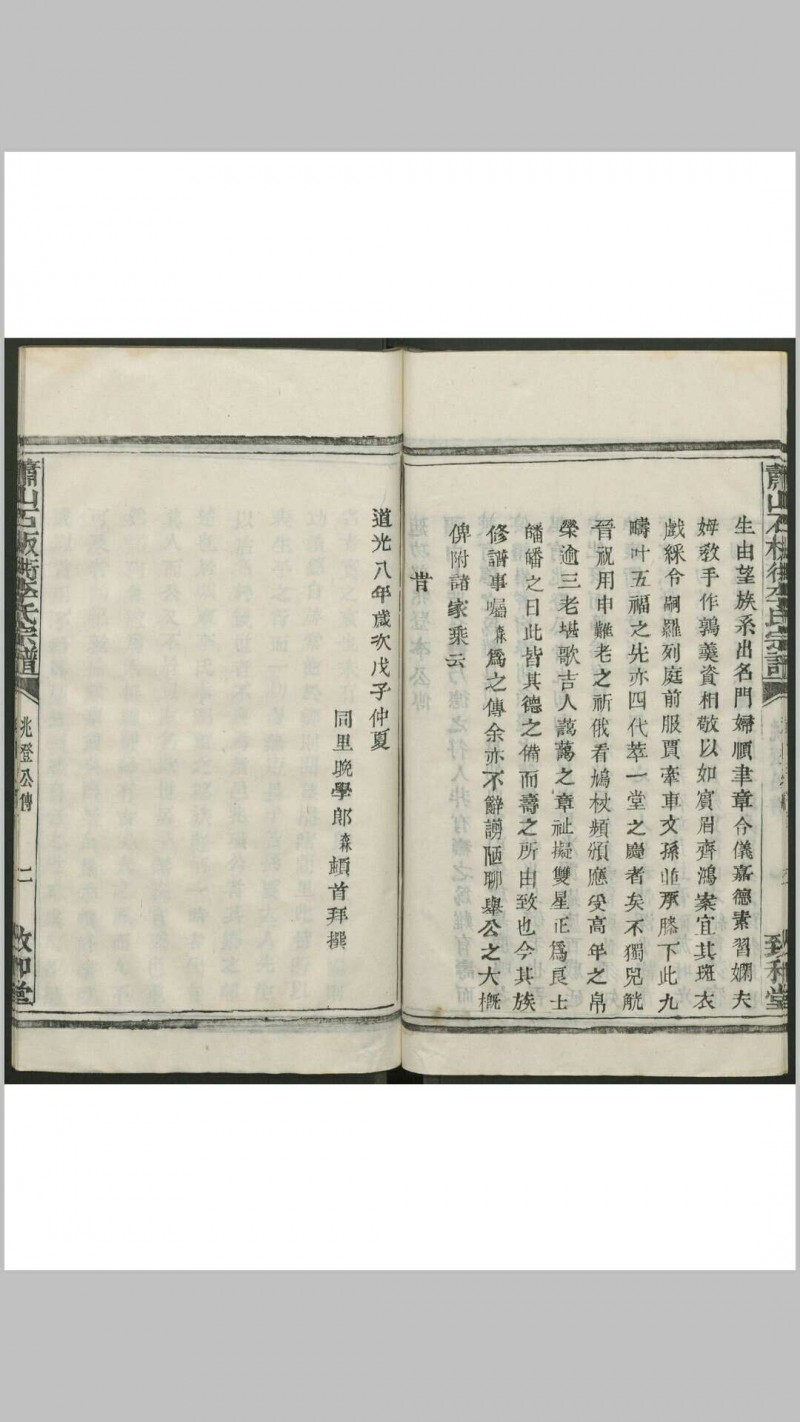 生由望族系出名門婦順聿章令儀嘉德素習嫺夫
姆敎手作鶉羹資相敬以如賓眉齊鴻案宜其斑衣
戲綵令嗣羅列庭前服賈牽車文孫並承膝下此九
疇叶五福之先亦四代萃一堂之慶者矣不獨兕觥
晉祝用申難老之祈俄看鳩杖頻頒應受高年之帛
榮逾三老堪歌吉人藹藹之章祉擬雙星正爲良士
皤皤之日此皆其德之備而壽之所由致也今其族
修譜事囑森爲之傳余亦不辭謭陋聊舉公之大槪
俾附諸家乘云
旹
道光八年歲次戊子仲夏
同里晚學郎森頓首拜撰
蕭山石板衖李氏宗譜
兆登公傳
二
致和堂